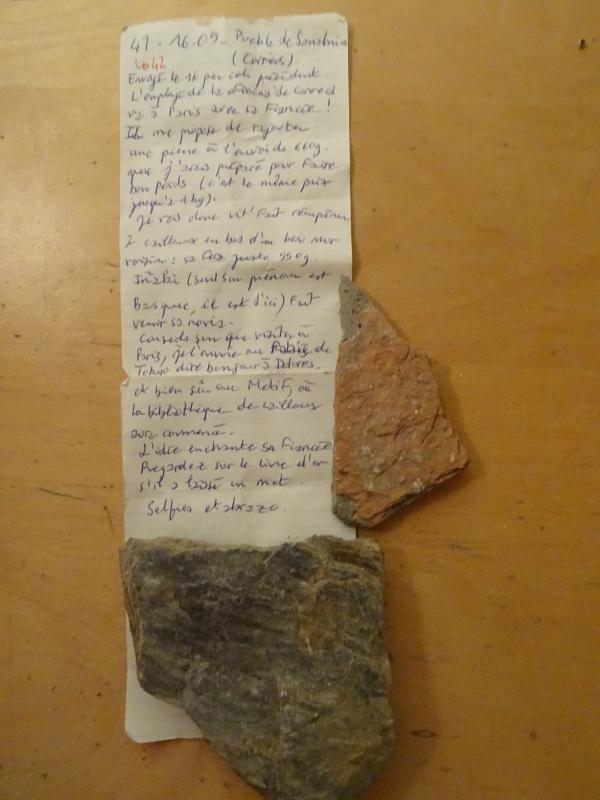 41 - 16-09 - Puebla de Sanabria
42
(Correos).
Envoyé le 16 par colis précédent.
L'employé de la oficina de correos
va à Paris avec sa Fiancée !
Il me propose de rajouter
une pierre à l'envoi de 660g.
que j'avais préparé pour Faire
bon poids (c'est le même prix
jusqu'à 1kg).
Je vais donc vit' Fait récupérer
2 cailloux en bas d'un beau mur
voisin : sa Fera juste 990g.
(seul son prénom est
Basque, il est d'ici) Fait
venir sa novia.
Conseils sur que visiter à
Paris, je l'envoie au de
Tokyo dire bonjour à Dolores.
et bien sûr au Motif, où
la bibliothèque de cailloux
sera commencé.
L'idée enchante sa Fiancée
Regardez sur le livre d'or
s'il a laissé un mot.
Selfies et abrazo.